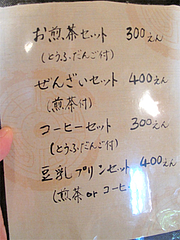 お煎茶セット 300えん
(とうふだんご付)
ぜんざいセット 400えん
(煎茶付)
コーヒーセット 300えん
(とうふだんご付)
豆乳プリンセット 400えん
(煎茶orコーヒ